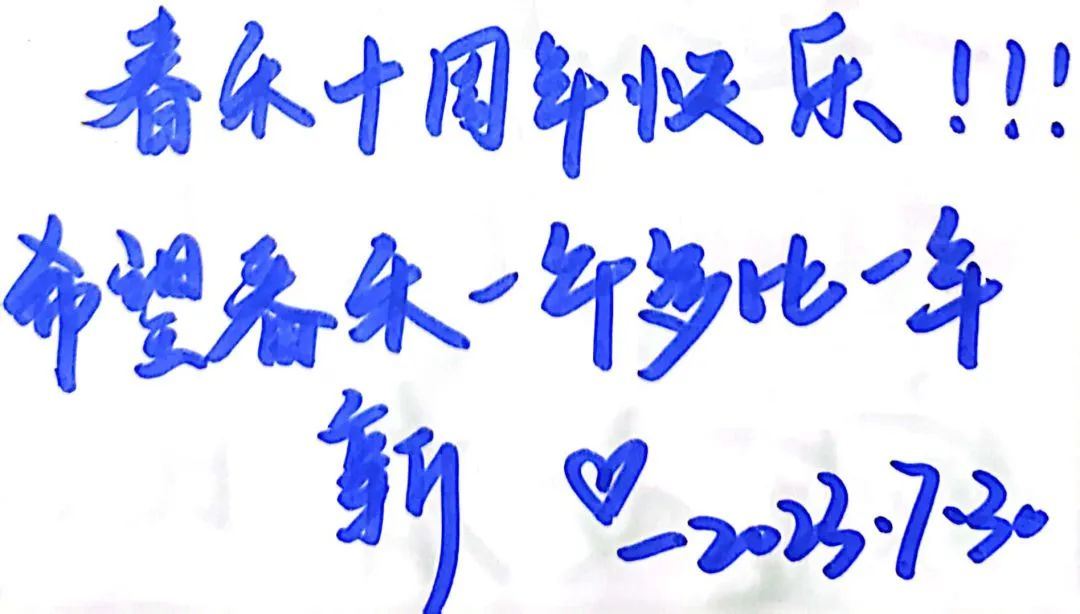 春禾十周年快乐!!!
希望春禾一年多比一年
新 ♡ —2023.7.30